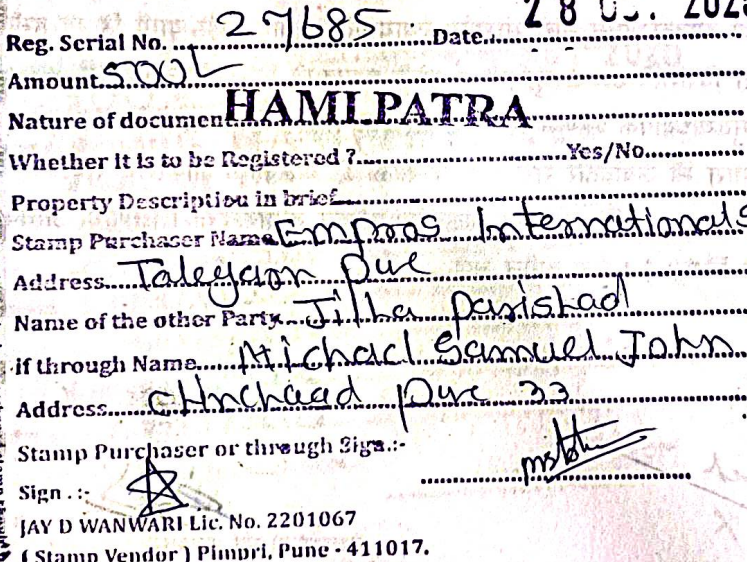 Reg. Serial No. 27685 Date. 28
Amount 500/-
Nature of document HAMI PATRA
Whether it is to be Registered ? Yes/No
Property Description in brief
Stamp Purchaser Name Internationals
Address Pune
Name of the other Party Jilha Parishad
if through Name Michael Samuel John
Address Pune 33
Stamp Purchaser or through Sign.:-
Sign . :-
JAY D WANWARI Lic. No. 2201067
( Stamp Vendor ) Pimpri, Pune - 411017.